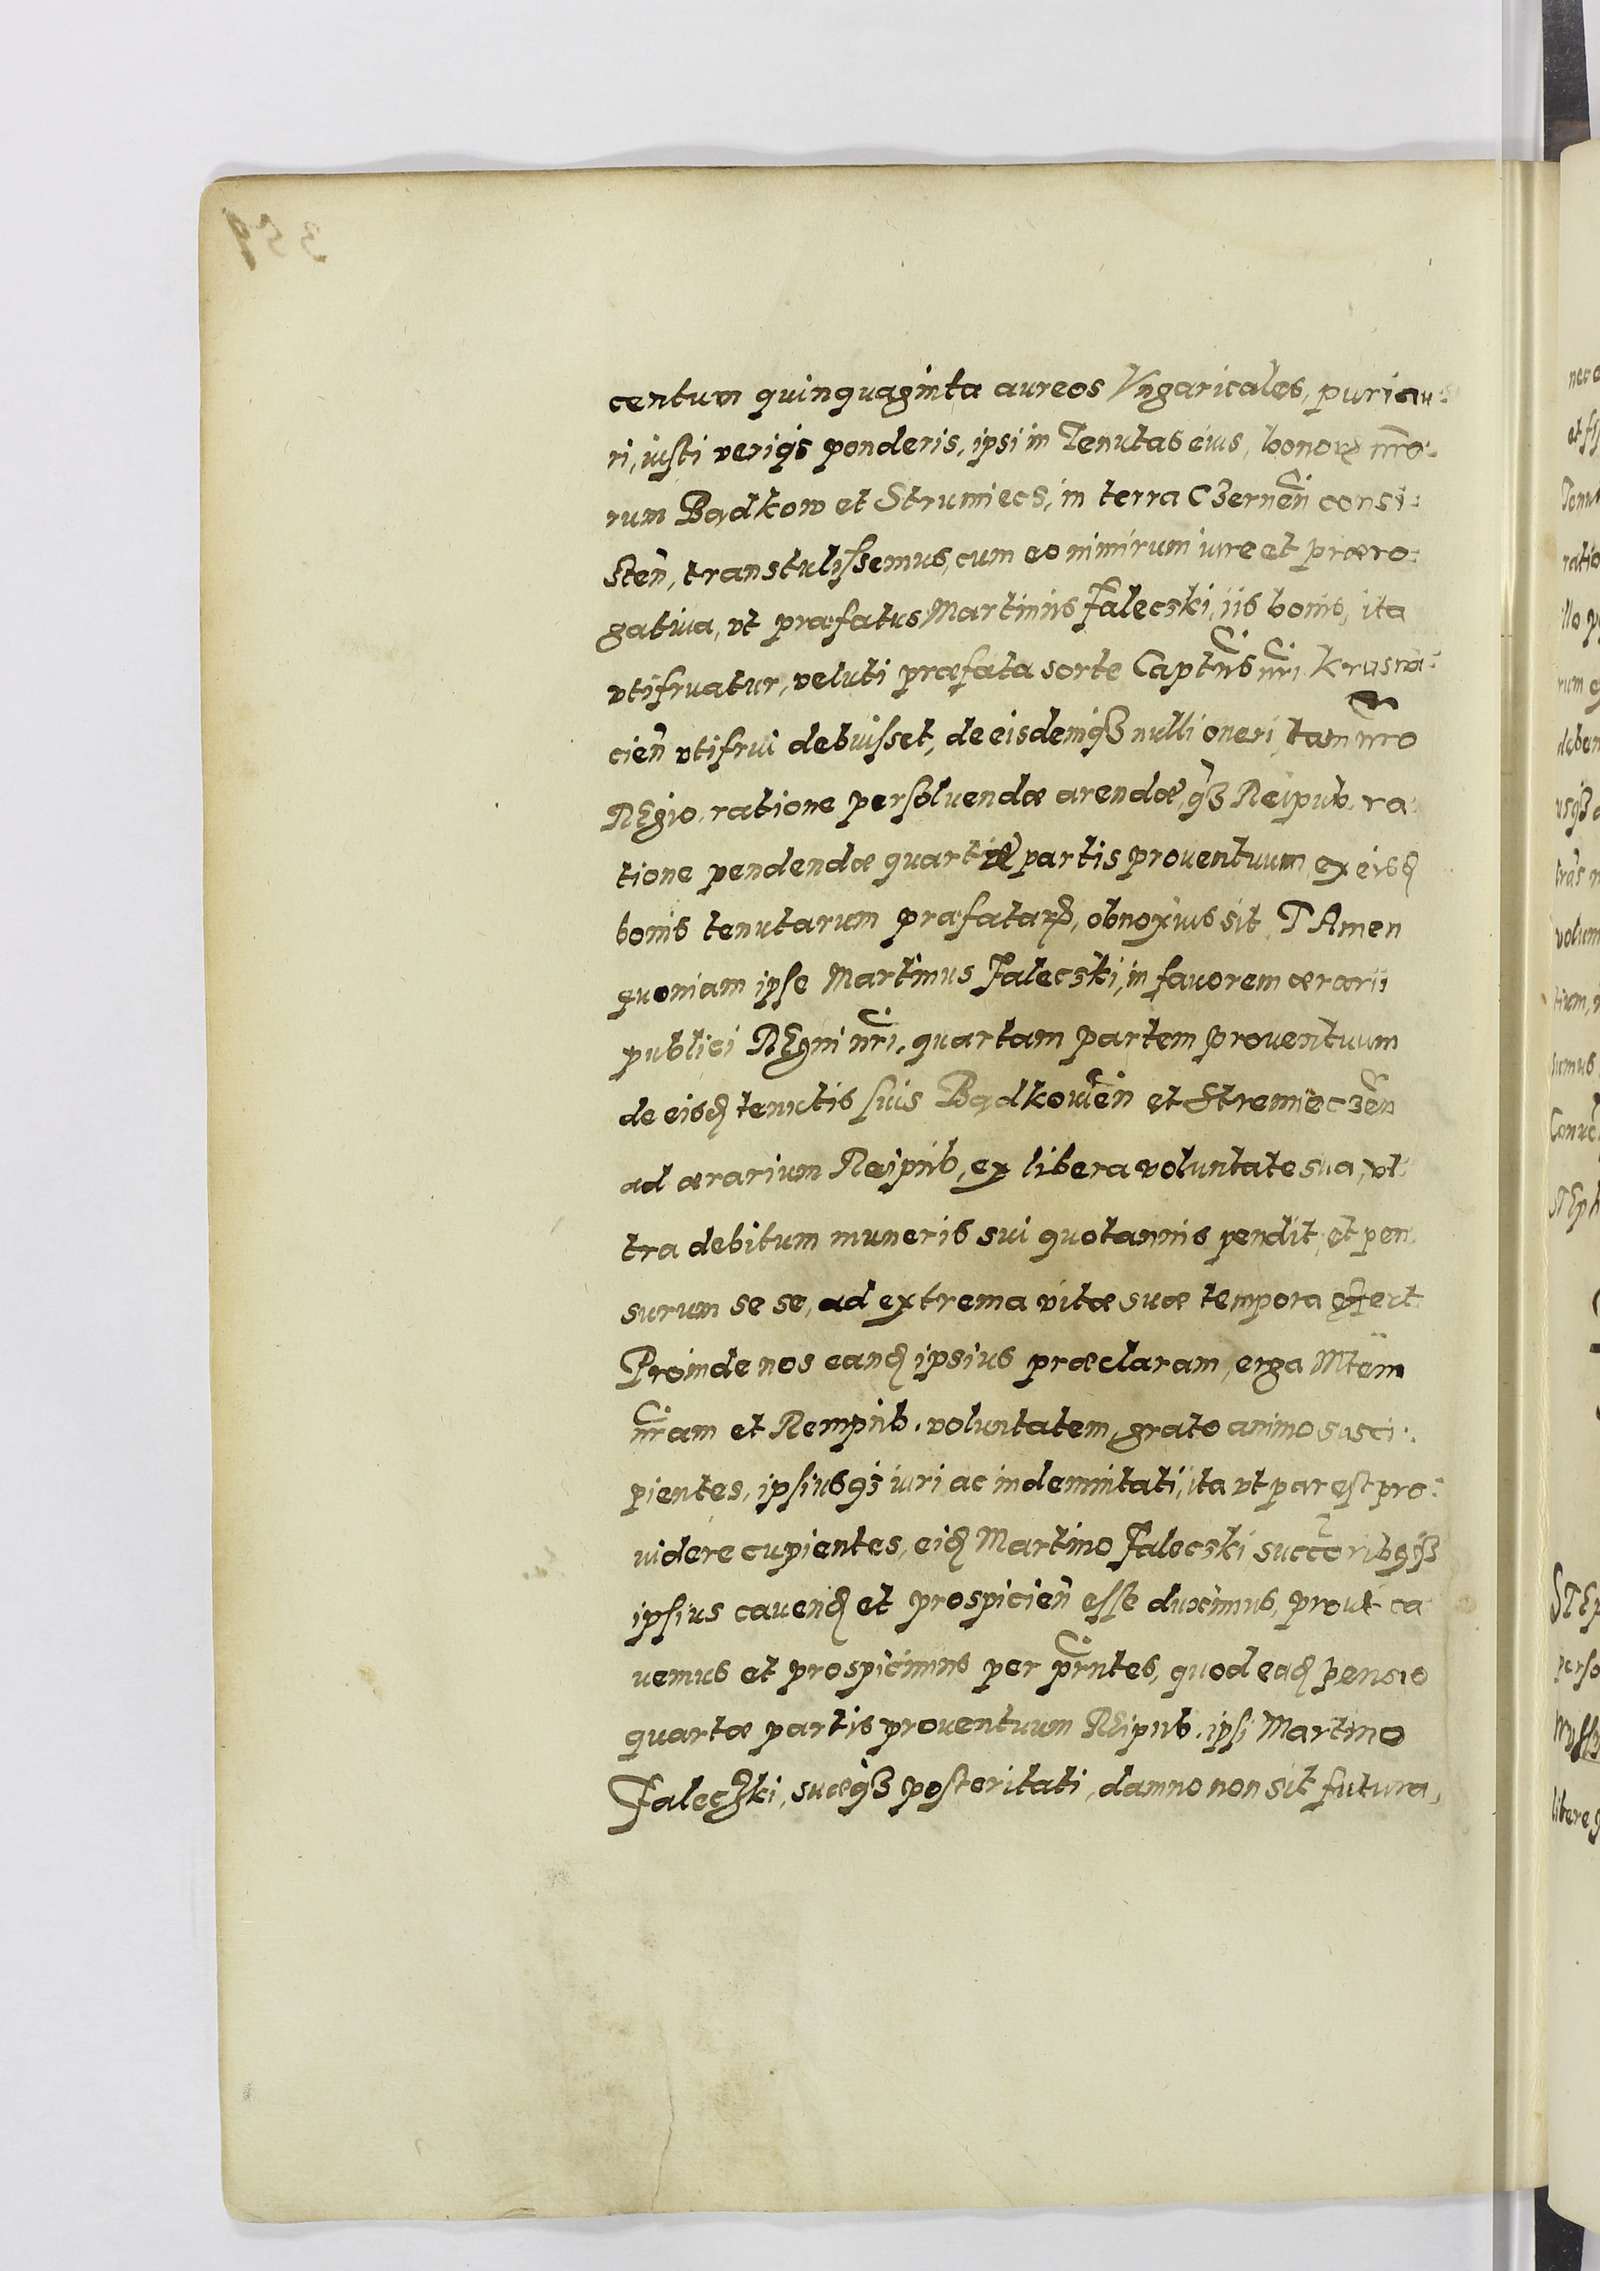 centum quinquaginta aureos Vngaricales, puri au:
ri, iusti veriqȝ ponderis, ipsi in Tenutas eius, bonoꝝ nr̃o:
rum Bądkow et Strumiecz, in terra Czerneñ consi:
steñ, transtulissemus, cum eo nimirum iure et præro:
gatiua, vt præfatus Martinus Faleczki, iis bonis, ita
vtifruatur, veluti præfata sorte Captñs nr̃i Krasni:
cieñ vtifrui debuisset, de eisdemqȝ nulli oneri, tam nr̃o
REgio, ratione persoluendæ arendæ, qȝ Reipub. ra
tione pendendæ quartæ partis prouentuum ex eisd̃
bonis tenutarum præfataꝝ, obnoxius sit TAmen
quoniam ipse Martinus Faleczki, in fauorem ærarii
publici REgni nr̃i, quartam partem prouentuum
de eisd̃ tenutis suis Bądkowieñ et Stremieczeñ
ad ærarium Reipub, ex libera voluntate sua, vl:
tra debitum muneris sui quotannis pendit, et pen
surum se se, ad extrema vitæ suæ tempora offert
Proinde nos eand̃ ipsius præclaram, erga Mtem̃
nr̃am et Rempub. voluntatem, grato animo susci:
pientes, ipsiusqȝ iuri ac indemnitati, ita vt par est pro:
uidere cupientes, eid̃ Martino Faleczki succoribqȝ
ipsius cauend̃ et prospicieñ esse duximus, prout ca
uemus et prospicimus per pr̃ntes, quod ead̃ pensio
quartæ partis prouentuum REipub. ipsi Martino
Faleczki, suæqȝ posteritati, damno non sit futura,